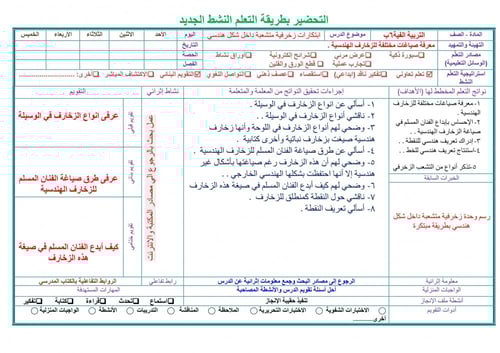 التحضير بطريقة التعلم النشط الجديد
المادة ـ الصف
التربية الفنية٦ب
موضوع الدرس
ابتكارات زخرفية متشعبة داخل شكل هندسي
اليوم
الأحد
الاثنين
الثلاثاء
الأربعاء
الخميس
التهيئة والتمهيد
معرفة صياغات مختلفة للزخارف الهندسية .
التاريخ
الوسائل (مصادر التعليم)
سبورة ذكية
عرض مرئي
شرائح الكترونية
أوراق نشاط
تجارب عملية
قطع الورق والفلين
الحصة
الفصل
استراتيجية التعلم النشط
تعلم تعاوني
تفكير ناقد (ابداعي)
استقصاء
عصف ذهني
التواصل اللغوي
التقويم البنائي
الاكتشاف المباشر
أخرى:
نواتج التعلم المخطط لها (الأهداف)
إجراءات تحقيق النواتج من المعلمة والمتعلمة
نشاط إثرائي
التقويم
١-معرفة صياغات مختلفة للزخارف الهندسية .
٢-الإحساس بإبداع الفنان المسلم في الزخارف الهندسية .
٣- إدراك تعريف هندسي للنقطة . .
٤-استنتاج تعريف هندسي للخط . .
٥-تتذكر أنواع من التشعب الزخرفي
الخبرات السابقة
رسم وحدة زخرفية متشعبة داخل شكل هندسي بطريقة مبتكرة
١- أسألي عن أنواع الزخارف في الوسيلة .
٢- ناقشي أنواع الزخارف في الوسيلة . .
٣- وضحي لهم أن أنواع الزخارف في اللوحة وأنها زخارف هندسية صيغت بزخارف نباتية وأخرى كتابية .
٤- أسألي عن طرق صياغة الفنان المسلم للزخارف الهندسية .
٥- وضحي لهم أن هذه الزخارف رغم صياغتها بأشكال غير هندسية إلا أنها احتفظت بشكلها الهندسي الخارجي . .
٦- وضحي لهم كيف أبدع الفنان المسلم في صيغة هذه الزخارف
٧- ناقشي حول النقطة كمنطلق للزخارف . .
٨- أسألي تعريف النقطة .
عمل بحث بالرجوع الى مصادر المكتبة والانترنت
تقويم قبلي
عرفي أنواع الزخارف في الوسيلة
تقويم بنائي
عرفي طرق صياغة الفنان المسلم للزخارف الهندسية
تقويم ختامي
كيف أبدع الفنان المسلم في صيغة هذه الزخارف
معلومة إثرائية
الرجوع إلى مصادر البحث وجمع معلومات إثرائية عن الدرس
رابط تفاعلي
الروابط التفاعلية بالكتاب المدرسي
الواجبات المنزلية
أحل أسئلة تقويم الدرس والأنشطة المصاحبة
المهارات المستهدفة
أنشطة ملف الإنجاز
تنفيذ حقيبة الإنجاز
استماع
تحدث
قراءة
كتابة
تفكير
أدوات التقويم
الاختبارات الشفوية
الاختبارات التحريرية
الملاحظة
المناقشة
التدريبات
الأنشطة
الواجبات المنزلية
أخرى